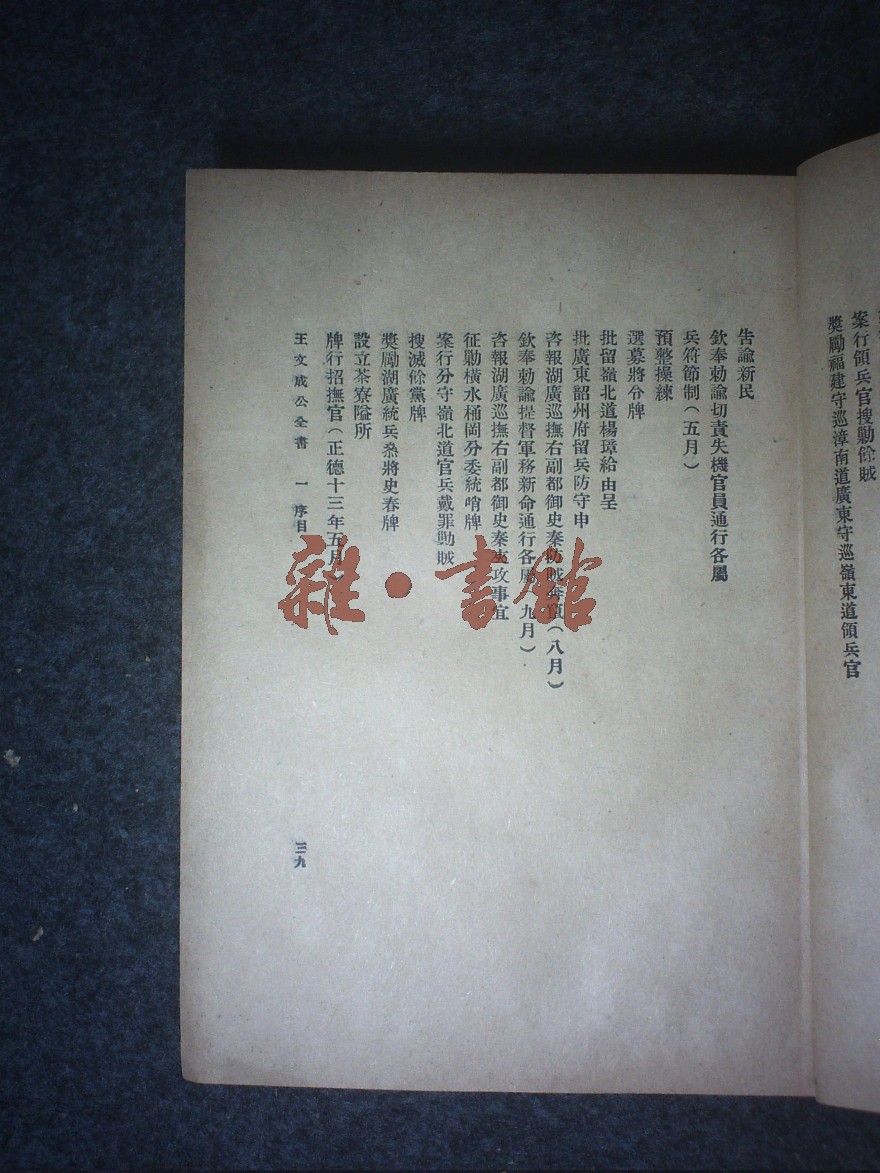 案行領兵官搜勦餘賊
獎勵福建守巡漳南道廣東守巡嶺東道領兵官
告諭新民
欽奉勅諭切責失機官員通行各屬
兵符節制(五月)
預整操練
選募將分牌
批留嶺北道楊璋給由呈
批廣東韶州府留兵防守申
咨報湖廣巡撫右副都御史秦防賊奔竄(八月)
欽奉勅諭提督軍務新命通行各屬(九月)
咨報湖廣巡撫右副都御史秦夾攻事宜
征勦橫水桶岡分委統哨牌
案行分守嶺北道官兵戴罪勦賊
搜滅餘黨牌
獎勵湖廣統兵叅將史春牌
設立茶寮隘所
牌行招撫官(正德十三年五月)
王文成公全書 一 序目
三九
雜·書館